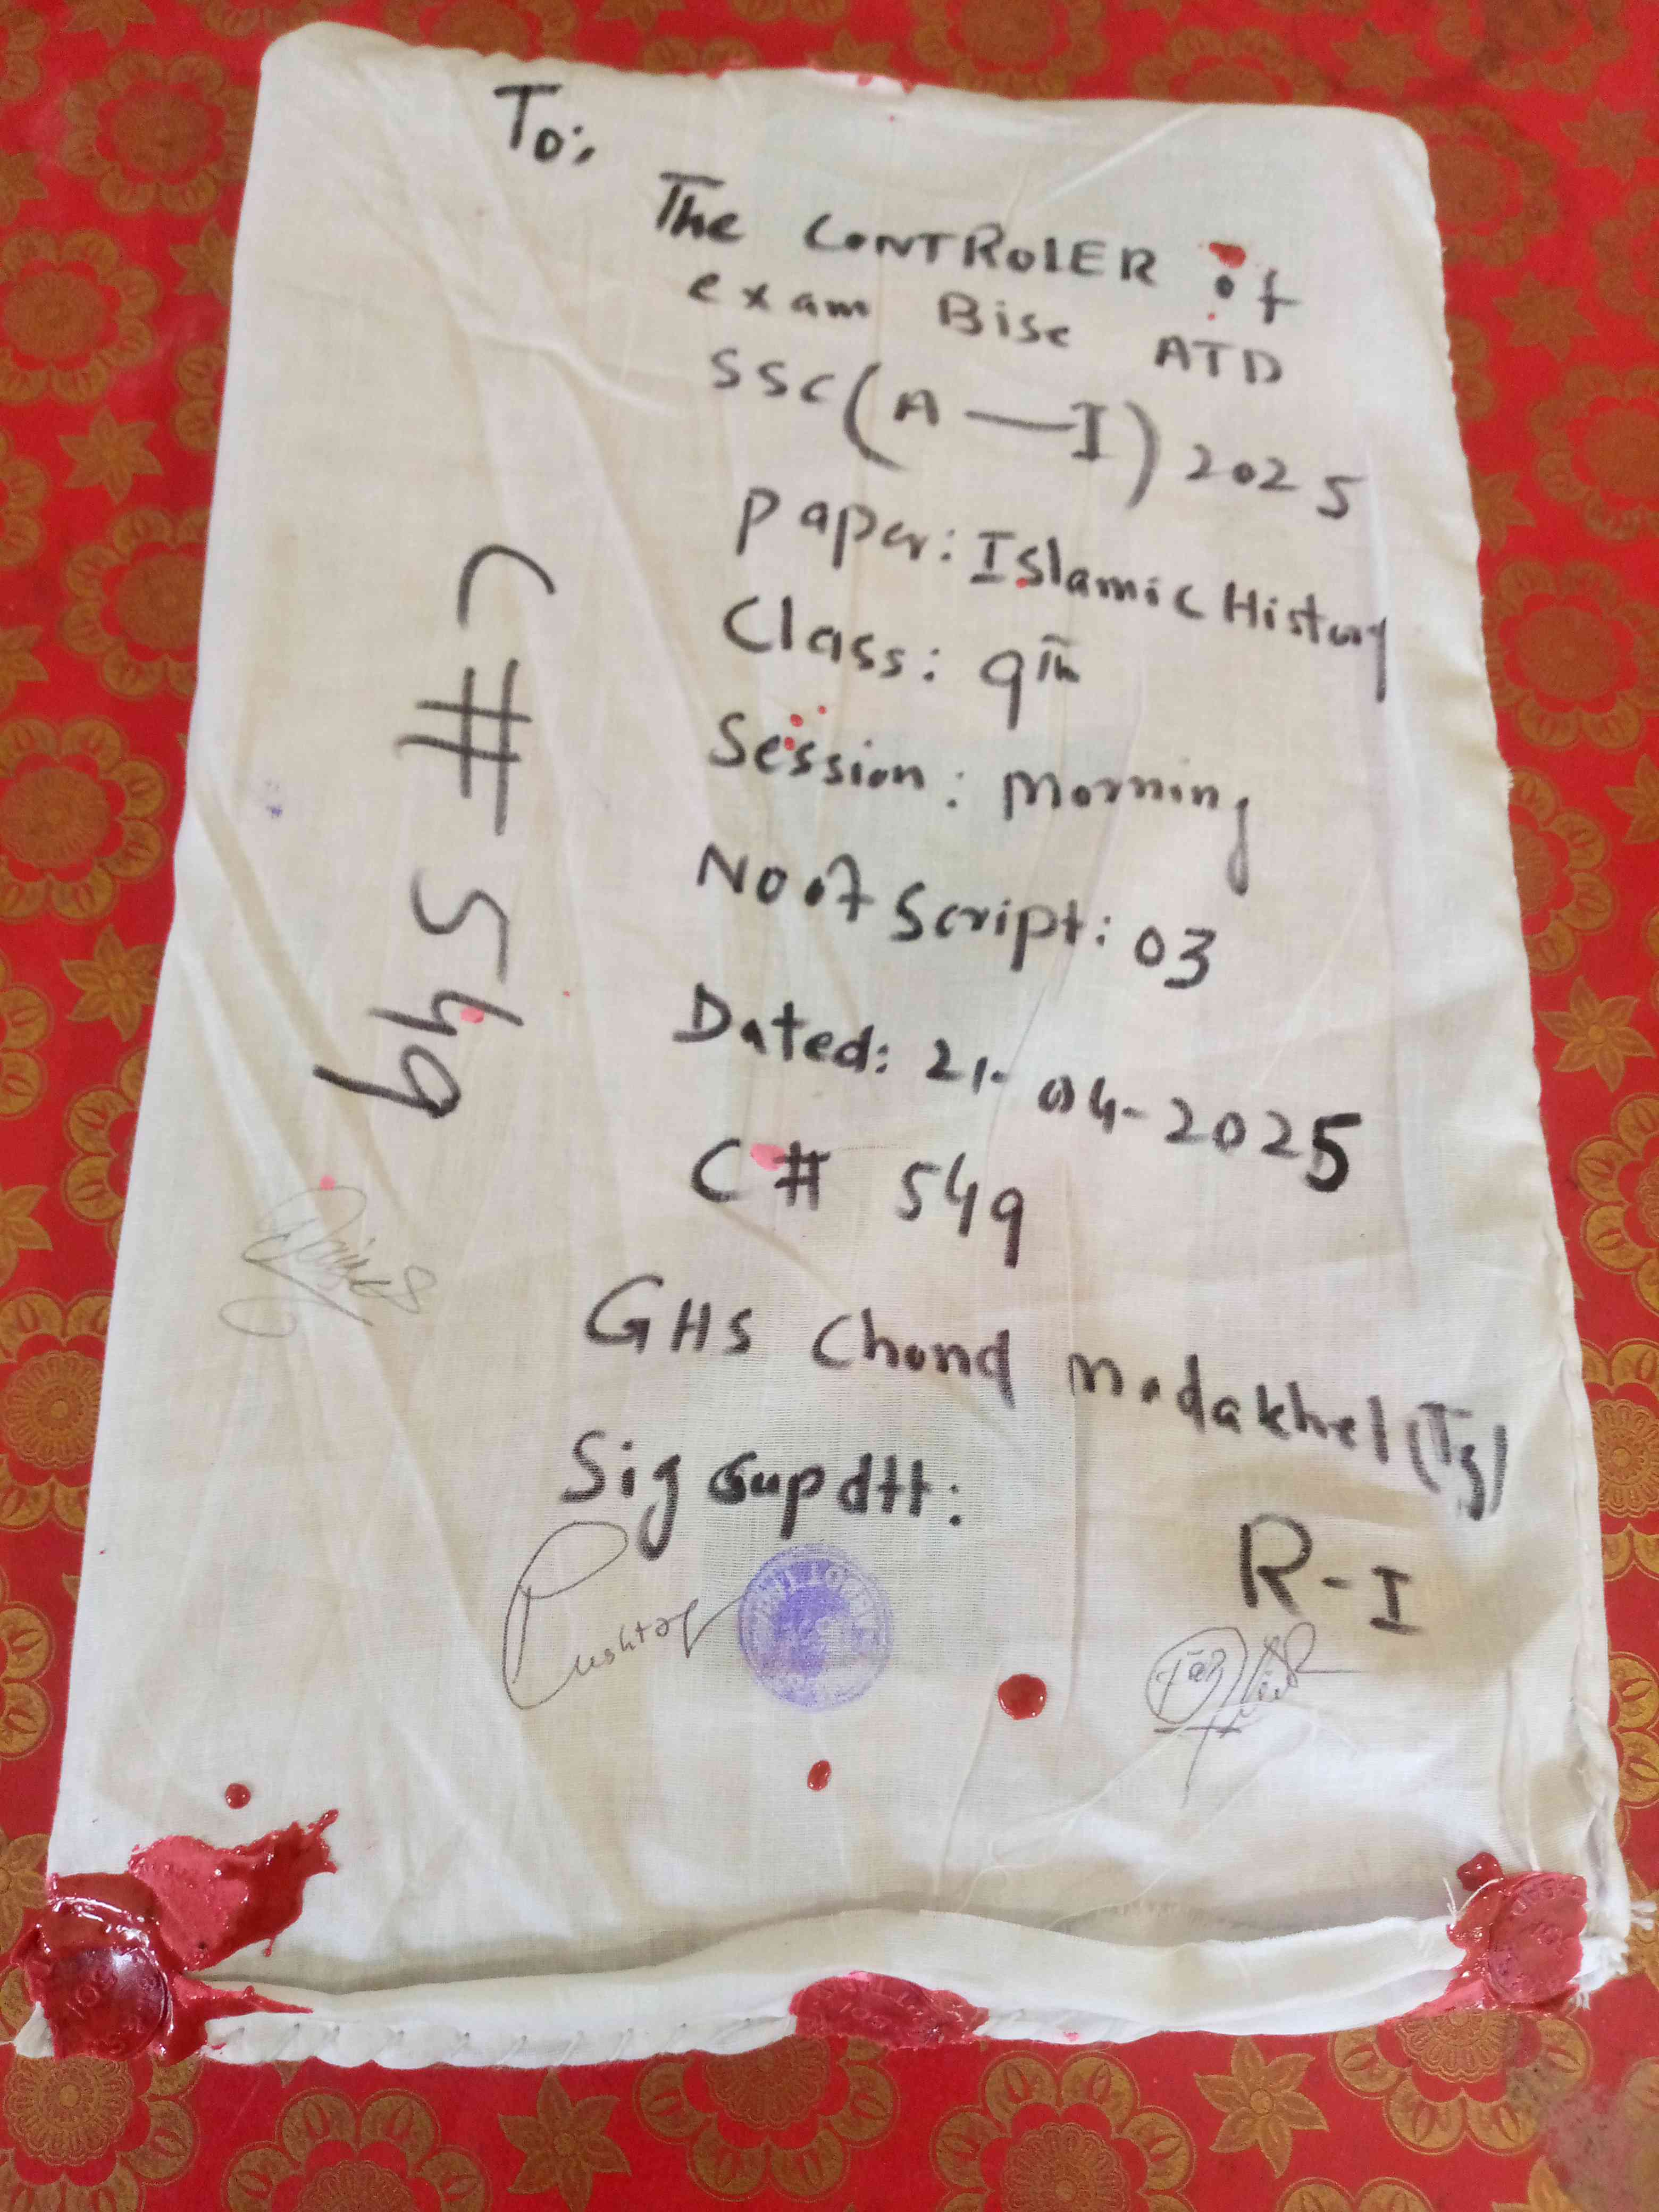 To:
The CONTROLER of
exam Bise ATD
SSC (A—I) 2025
Paper: Islamic History
Class: 9th
Session: Morning
No of Script: 03
Dated: 21-04-2025
C# 549
GHS Chond Madakhel (Tg)
Sig Supdtt:
R-I
C # 549